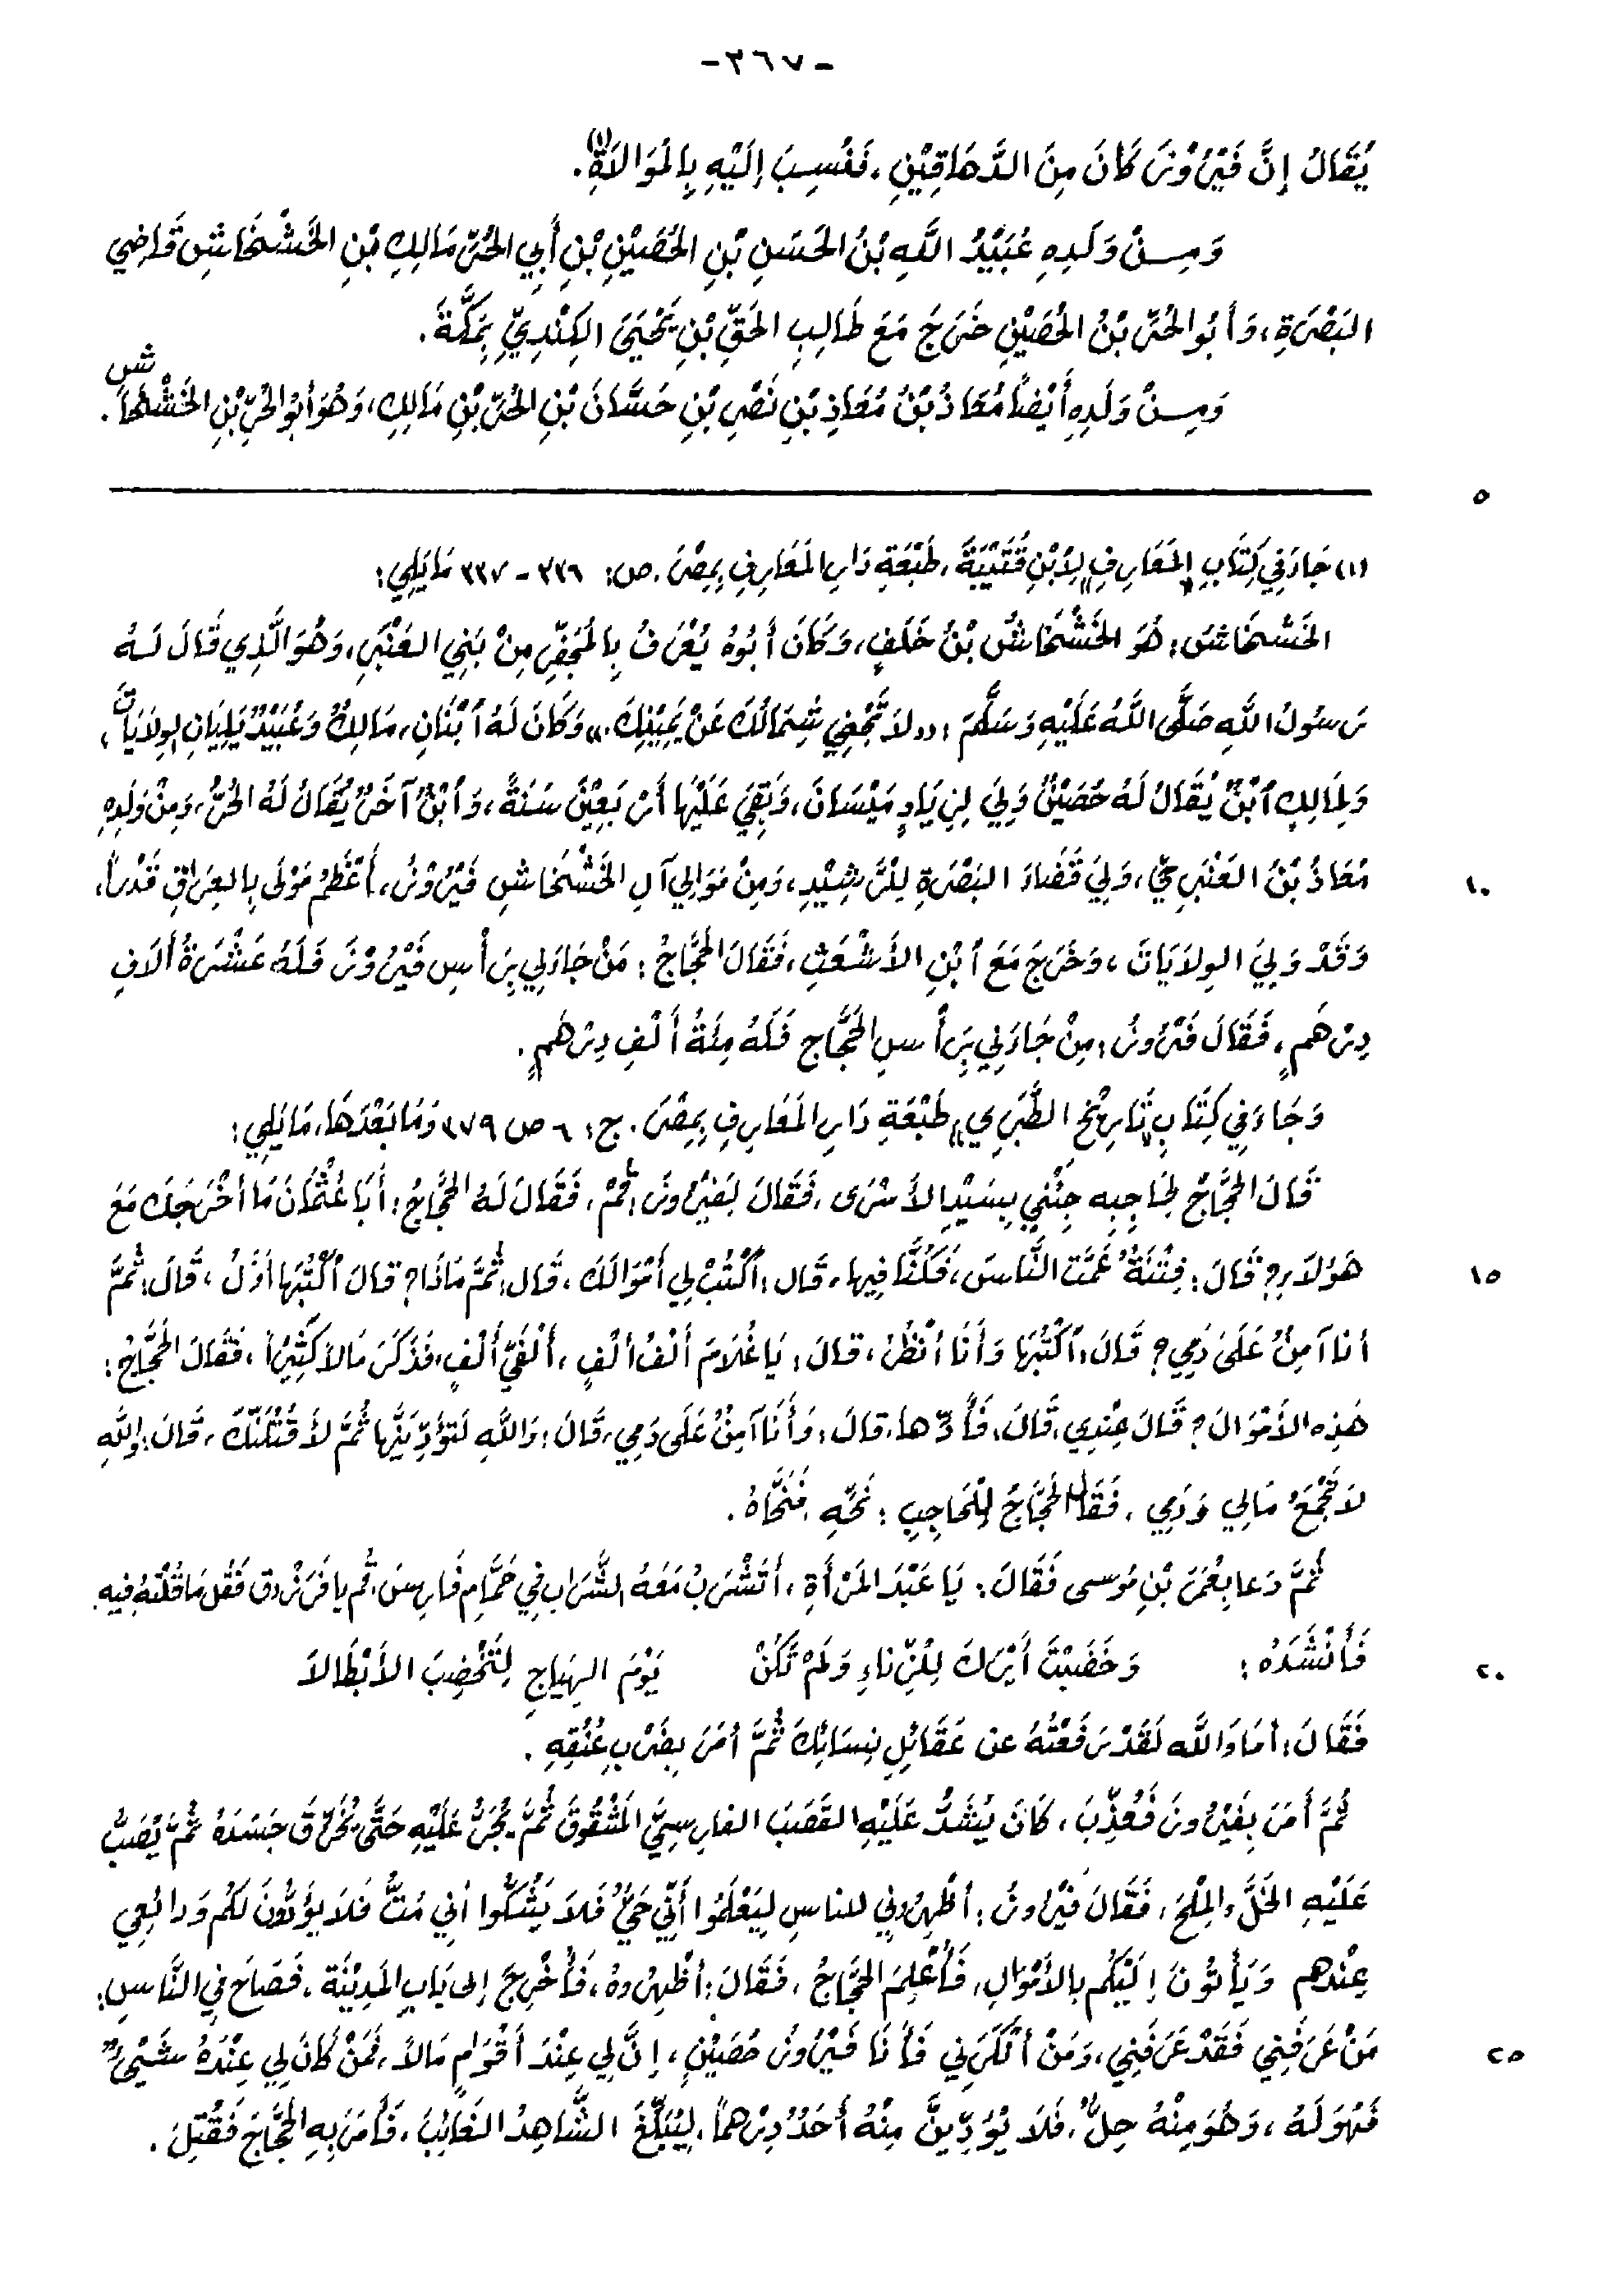 -٣٦٧-
يُقَالُ إِنَّ فَيْرُوْزَ كَانَ مِنَ الدَّهَاقِيْنِ، فَنُسِبَ إِلَيْهِ بِالمَوَالَاةِ(١).
وَمِنْ وَلَدِهِ عُبَيْدُ اللَّهِ بْنُ الحَسَنِ بْنِ الحُصَيْنِ بْنِ أَبِي الحُرِّ مَالِكِ بْنِ الخَشْخَاشِ قَاضِي
البَصْرَةِ، وَأبُو الحُرِّ بْنُ الحُصَيْنِ خَرَجَ مَعَ طَالِبِ الحَقِّ بْنِ يَحْيَى الكِنْدِيِّ بِمَكَّةَ.
وَمِنْ وَلَدِهِ أَيْضاً مُعَاذُ بْنُ مُعَاذِ بْنِ نَصْرِ بْنِ حَسَّانَ بْنِ الحُرِّ بْنِ مَالِكِ، وَهُوَ أبُو الحُرِّ بْنِ الخَشْخَاشِ.
٥
(١) جَاءَ فِي كِتَابِ "المَعَارِفِ" لِأبْنِ قُتَيْبَةَ، طَبْعَةِ دَارِ المَعَارِفِ بِمِصْرَ. ص: ٣٣٦ - ٣٣٧ مَا يَلِي:
الخَشْخَاشُ: هُوَ الخَشْخَاشُ بْنُ خَلَفٍ، وَكَانَ أبُوهُ يُعْرَفُ بِالمُجْفِرِ مِنْ بَنِي العَنْبَرِ، وَهُوَ الَّذِي قَالَ لَهُ
رَسُولُ اللَّهِ صَلَّى اللَّهُ عَلَيْهِ وَسَلَّمَ: «لَا تَجْنِي شِمَالُكَ عَنْ يَمِيْنِكَ.» وَكَانَ لَهُ أبْنَانِ، مَالِكٌ وَعُبَيْدٌ يَلِيَانِ الوِلَايَاتِ،
وَلِمَالِكٍ أبْنٌ يُقَالُ لَهُ حُصَيْنٌ وَلِيَ لِزِيَادٍ مَيْسَانَ، وَبَقِيَ عَلَيْهَا أَرْبَعِيْنَ سَنَةً، وَأبْنٌ آخَرُ يُقَالُ لَهُ الحُرُّ، وَمِنْ وَلَدِهِ
مُعَاذُ بْنُ العَنْبَرِيِّ، وَلِيَ قَضَاءَ البَصْرَةِ لِلرَّشِيْدِ، وَمِنْ مَوَالِي آلِ الخَشْخَاشِ فَيْرُوْزُ، أَعْظَمُ مَوْلَى بِالعِرَاقِ قَدْراً، ١٠
وَقَدْ وَلِيَ الوِلَايَاتَ، وَخَرَجَ مَعَ أبْنِ الأَشْعَثِ، فَقَالَ الحَجَّاجُ: مَنْ جَاءَنِي بِرَأْسِ فَيْرُوْزَ فَلَهُ عَشْرَةُ آلَافِ
دِرْهَمٍ، فَقَالَ فَيْرُوزُ: مِنْ جَاءَنِي بِرَأْسِ الحَجَّاجِ فَلَهُ مِئَةُ أَلْفِ دِرْهَمٍ.
وَجَاءَ فِي كِتَابِ "تَارِيْخِ الطَّبَرِي" طَبْعَةِ دَارِ المَعَارِفِ بِمِصْرَ. ج: ٦ ص ٣٧٩ وَمَا بَعْدَهَا، مَا يَلِي:
قَالَ الحَجَّاجُ لِحَاجِبِه جِئْنِي بِسَيِّدِ الأَسْرَى، فَقَالَ لِفَيْرُوزَ: قُمْ، فَقَالَ لَهُ الحَجَّاجُ: أبَا عُثْمَانَ مَا أخْرَجَكَ مَعَ
هَؤُلَاءِ؟ قَالَ: فِتْنَةٌ عَمَّتِ النَّاسَ، فَكُنَّا فِيهَا، قَال: أكْتُبْ لِي أَمْوَالَكَ، قَال: ثُمَّ مَاذَا؟ قَالَ أكْتُبْهَا أوَّلُ، قَالَ: ثُمَّ ١٥
أنا آمِنٌ عَلَى دَمِي؟ قَالَ: أكْتُبْهَا وَأَنَا أنْظُرُ، قَالَ: يَا غُلَامُ أَلْفُ أَلْفٍ، أَلْفَيْ أَلْفٍ، فَذَكَرَ مَالاً كَثِيْراً، فَقَالَ الحَجَّاجُ:
هَذِهِ الأَمْوَالُ؟ قَالَ عِنْدِي، قَالَ: فَأَدِّهَا، قَالَ: وَأَنَا آمِنٌ عَلَى دَمِي، قَالَ: وَاللَّهِ لَتُؤَدِّيَنَّهَا ثُمَّ لأَقْتُلَنَّكَ، قَالَ: وَاللَّهِ
لَا تَجْمَعُ مَالِي وَدَمِي، فَقَالَ الحَجَّاجُ لِلْحَاجِبِ: نَحِّهِ، فَنَحَّاهُ.
ثُمَّ دَعَا بِعُمَرَ بْنِ مُوسى فَقَالَ: يَا عَبْدَ المَرْأَةِ، أتَشْرَبُ مَعَهُ الشَّرَابَ فِي حَمَّامِ فَارِسَ. قُم يا فَرَزْدق فَقُل مَا قُلْتَهُ فِيهِ.
فَأَنْشَدَهُ: وَخَضَبْتَ أَيْرَكَ لِلزِّنَاءِ وَلَمْ تَكُنْ يَوْمَ الهِيَاجِ لِتَخْضِبَ الأَبْطَالَا ٢٠
فَقَالَ: أمَا وَاللَّه لَقَدْ رَفَعْتُهُ عن عَقَائِلِ نِسَائِكَ ثُمَّ أمَرَ بِضَرْبِ عُنُقِهِ.
ثُمَّ أَمَرَ بِفَيْرُوزَ فَعُذِّبَ، كَانَ يُشَدُّ عَلَيْهِ القَصَبَ الفارِسِيَّ المَشْقُوقَ ثُمَّ يُجَرُّ عَلَيْهِ حَتَّى يُخَرِّقَ جَسَدَهُ ثُمَّ يُصَبُّ
عَلَيْهِ الخَلَّ وَالمِلْحَ، فَقَالَ فَيْرُوزُ: أظْهِرُونِي للناسِ لِيَعْلَمُوا أَنِّي حَيٌّ فَلَا يَشُكُّوا أنِي مُتُّ فَلَا يُؤَدُّونَ لَكُم وَدائِعِي
عِنْدَهم وَيَأْتُونَ إِلَيْكُم بالأَمْوَالِ، فَأُعْلِمَ الحَجَّاجُ، فَقَالَ: أظْهِرُوهُ، فَأُخْرِجَ إلى بَابِ المَدِيْنَةِ، فَصَاحَ فِي النَّاسِ:
مَنْ عَرَفَنِي فَقَدْ عَرَفَنِي، وَمَنْ أنْكَرَنِي فَأَنَا فَيْرُوزُ حُصَيْنٍ، إِنَّ لِي عِنْدَ أَقْوَامٍ مَالاً، فَمَنْ كَانَ لِي عِنْدَهُ شَيْءٌ ٢٥
فَهُوَ لَهُ، وَهُوَ مِنْهُ حِلٌّ، فَلَا يُؤَدِّيَنَّ مِنْهُ أَحَدٌ دِرْهماً، لِيُبَلِّغَ الشَّاهِدُ الغَائِبَ، فَأَمَرَ بِهِ الحَجَّاجُ فَقُتِلَ.